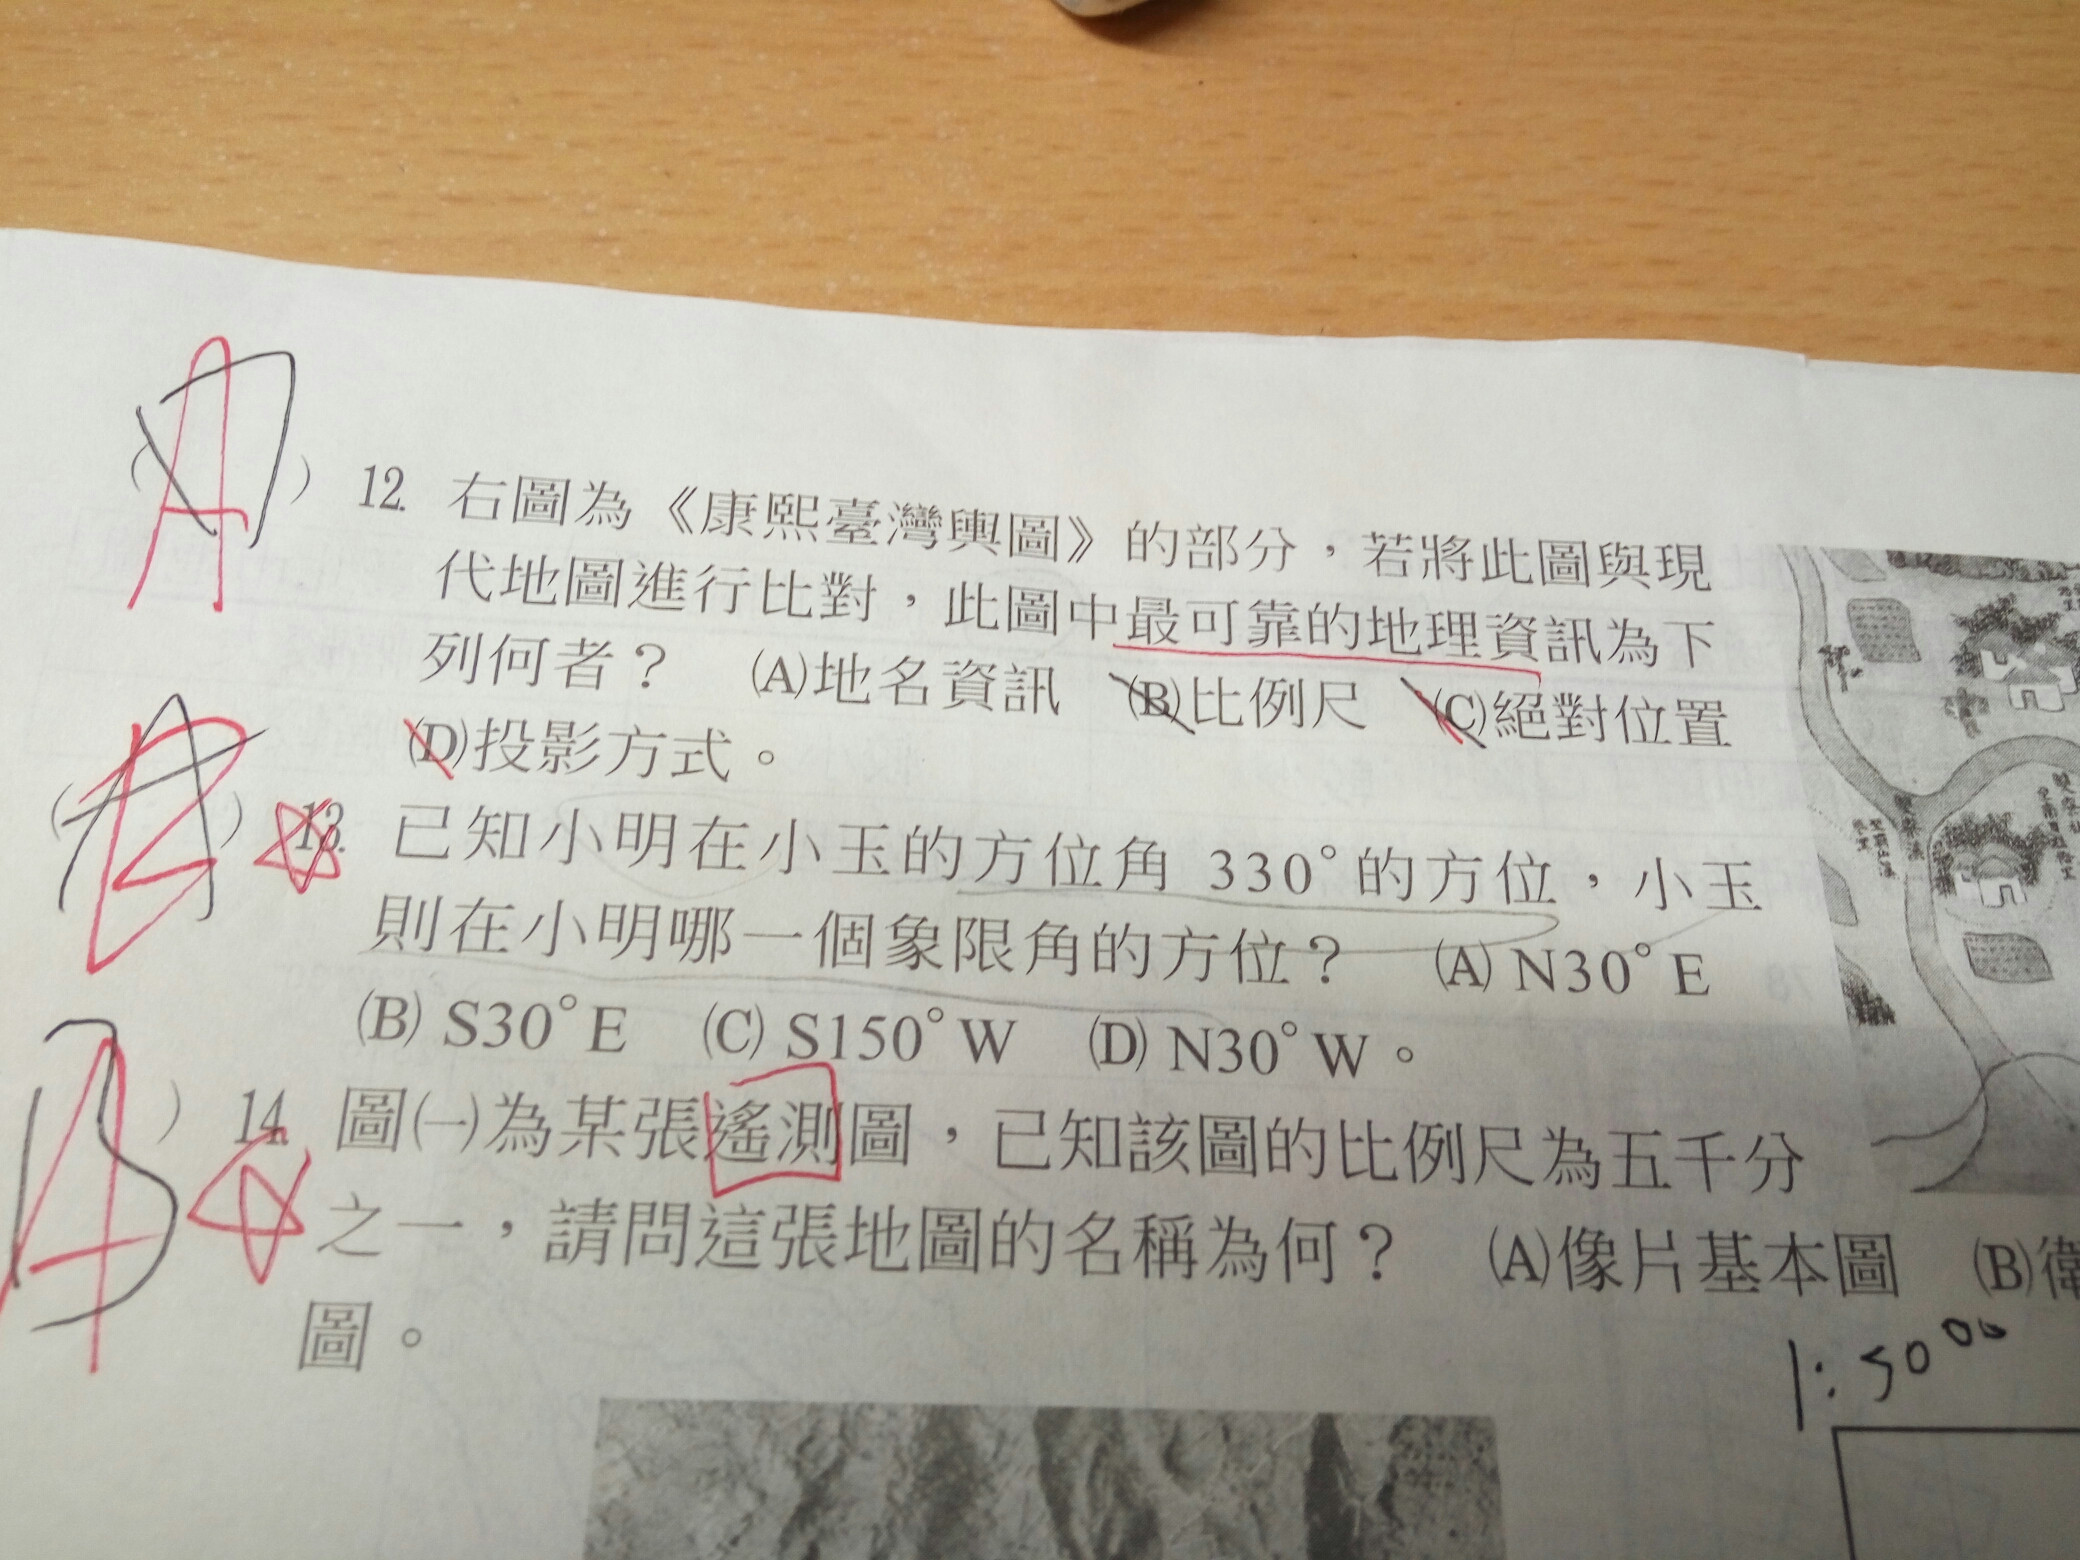 A
( ) 12. 右圖為《康熙臺灣輿圖》的部分，若將此圖與現
代地圖進行比對，此圖中最可靠的地理資訊為下
列何者？ (A)地名資訊 (B)比例尺 (C)絕對位置
(D)投影方式。
( ) 13. 已知小明在小玉的方位角 330°的方位，小玉
則在小明哪一個象限角的方位？ (A) N30°E
(B) S30°E (C) S150°W (D) N30°W。
A
) 14. 圖㈠為某張遙測圖，已知該圖的比例尺為五千分
之一，請問這張地圖的名稱為何？ (A)像片基本圖 (B)衛
圖。
1:5000